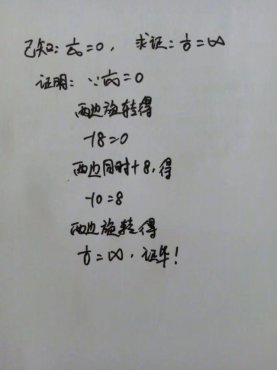 已知: 1/∞=0, 求证: 1/0=∞
证明: ∵1/∞=0
两边旋转得
-18=0
两边同时+8,得
-10=8
两边旋转得
1/0=∞,证毕!